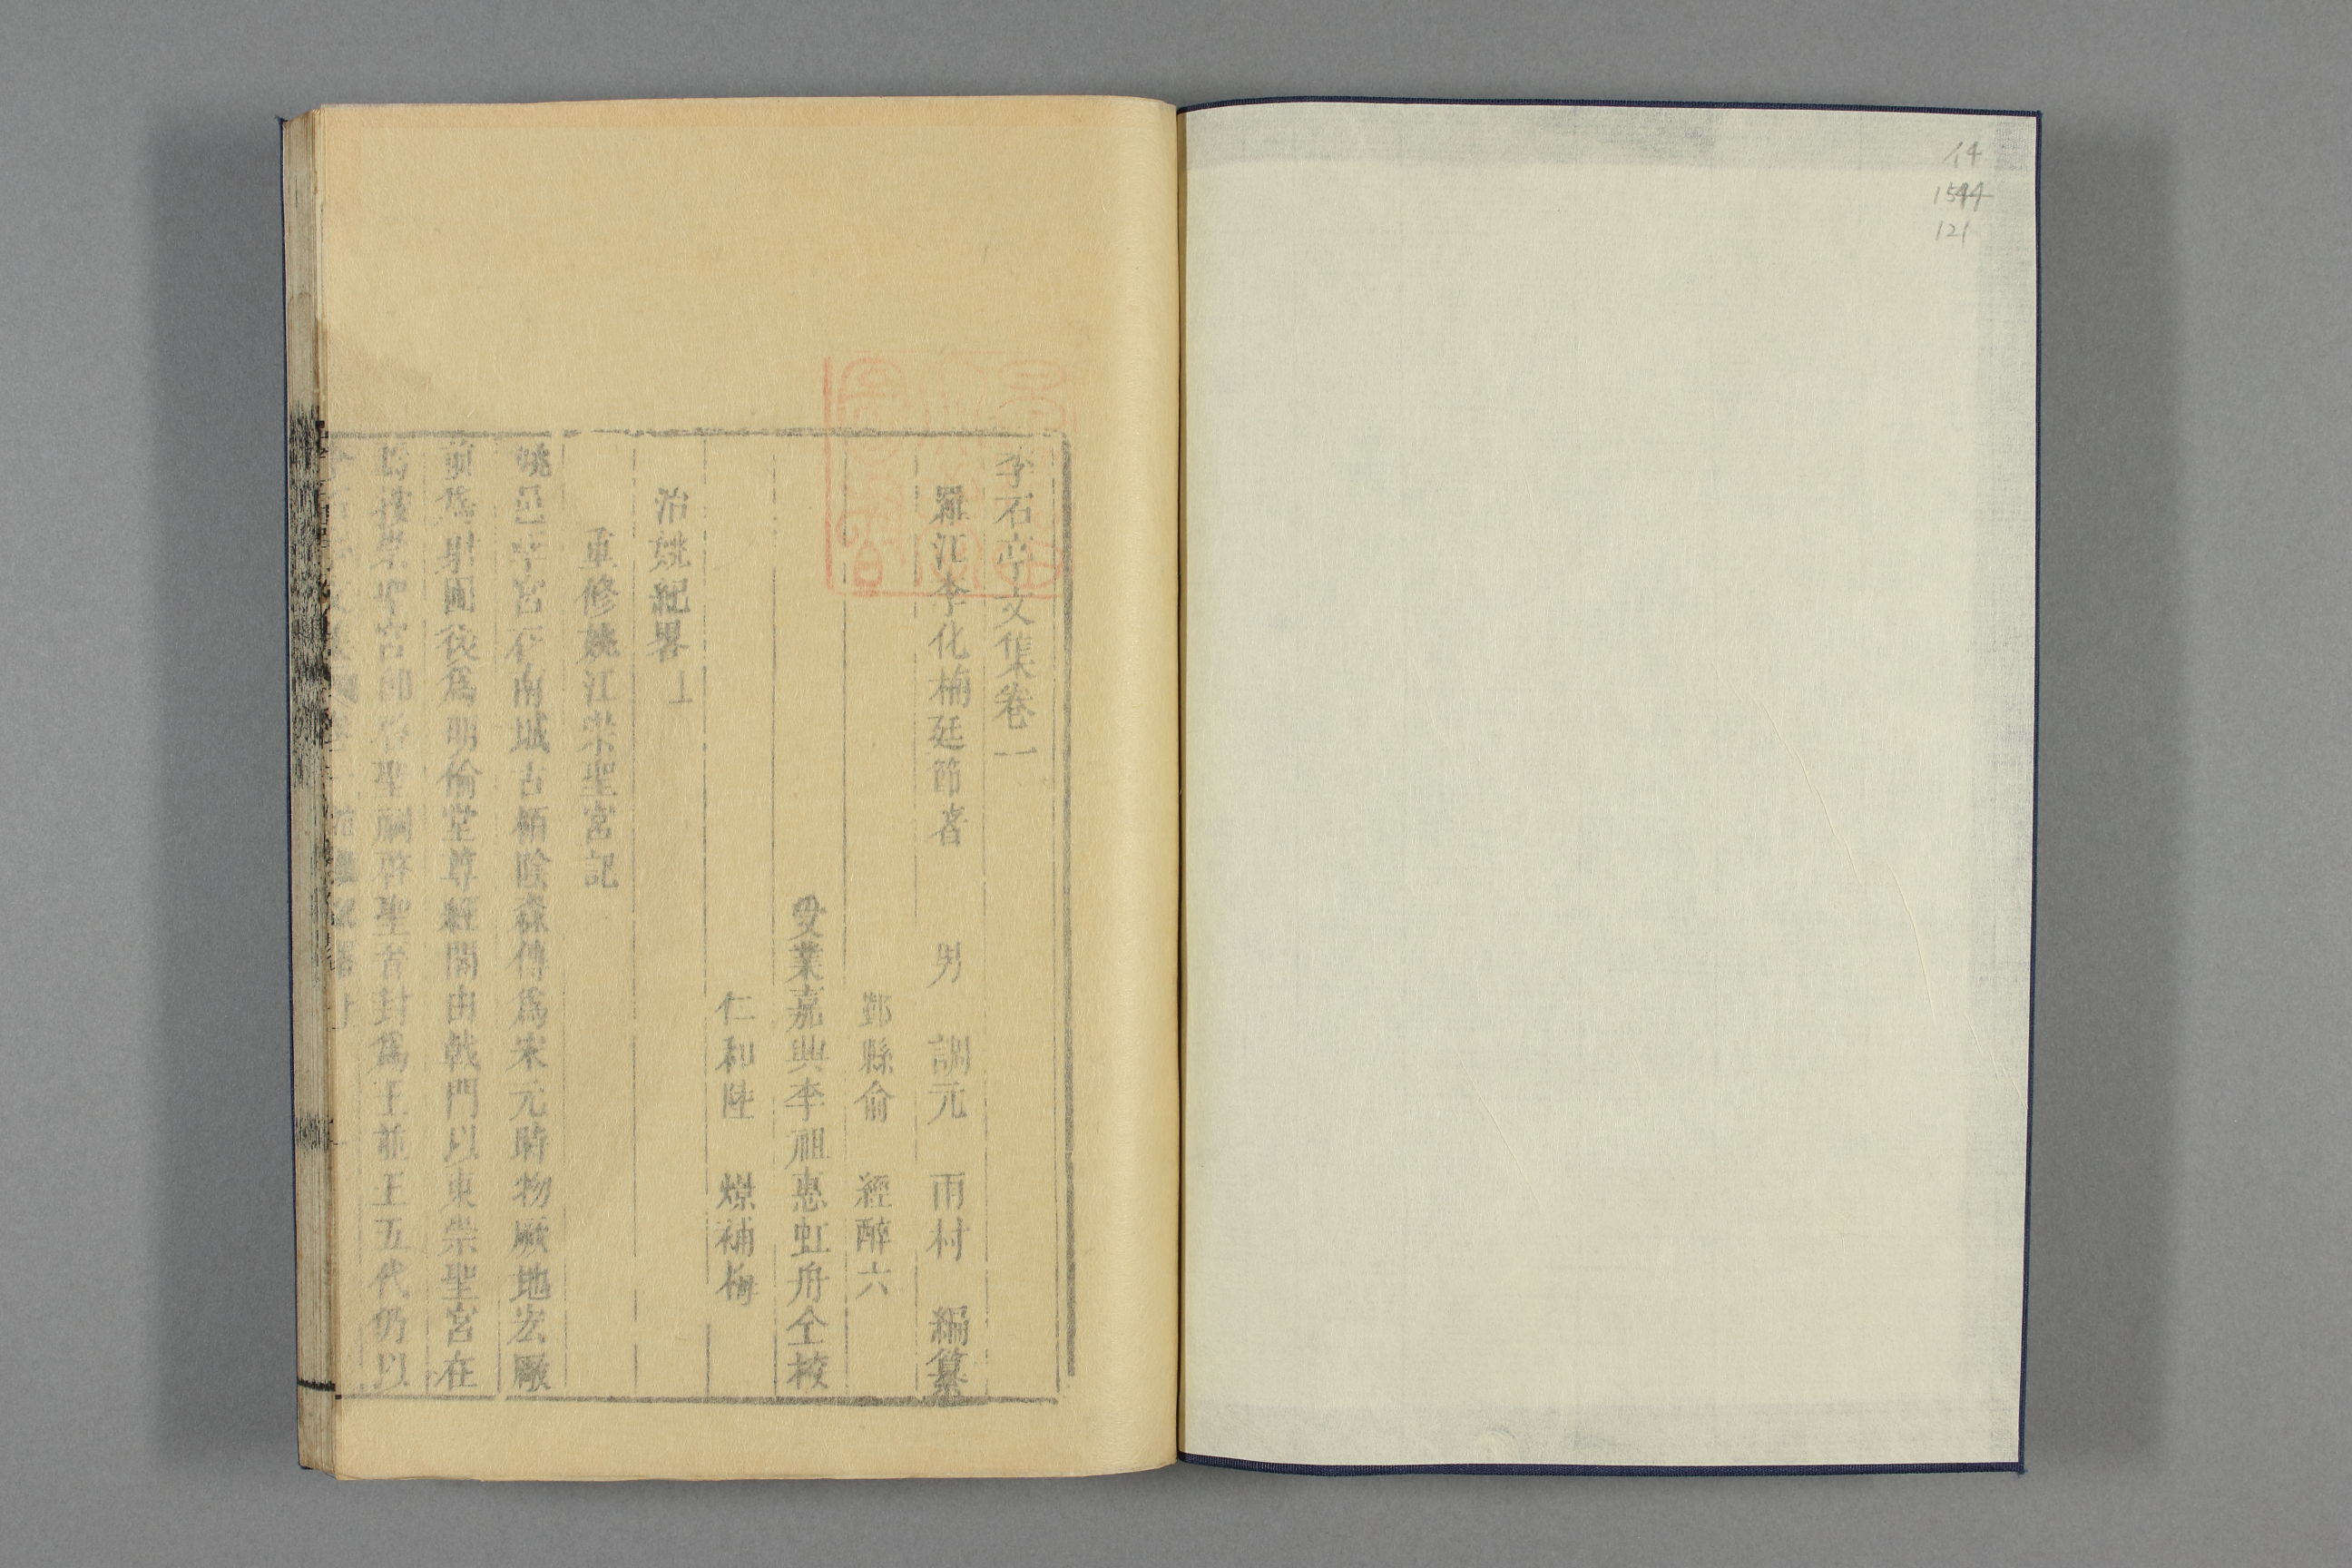 14
1544
121
李石亭文集卷一
羅江李化楠廷節著　男　調元　雨村　編纂
鄞縣俞　經醉六
受業嘉興李祖惠虹舟仝校
仁和陸　燝補梅
治姚紀畧上
重修姚江崇聖宮記
姚邑學宮在南城古柏陰森傳爲宋元時物厥地宏厰
前爲射圃後爲明倫堂尊經閣由戟門以東崇聖宮在
焉按崇聖宮卽舊啓聖祠啓聖昔封爲王並王五代仍以